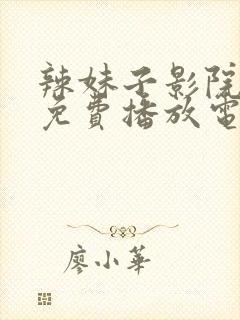 辣妹子影院
免費播放電
廖小華